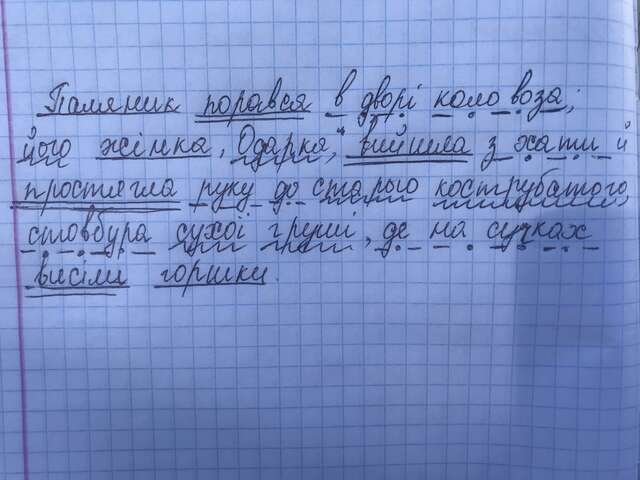 Паляник порався в дворі коло воза;
його жінка, Одарка, вийшла з хати й
простягла руку до старого кострубатого,
стовбура сухої груші, де на сучках
висіли горшки.